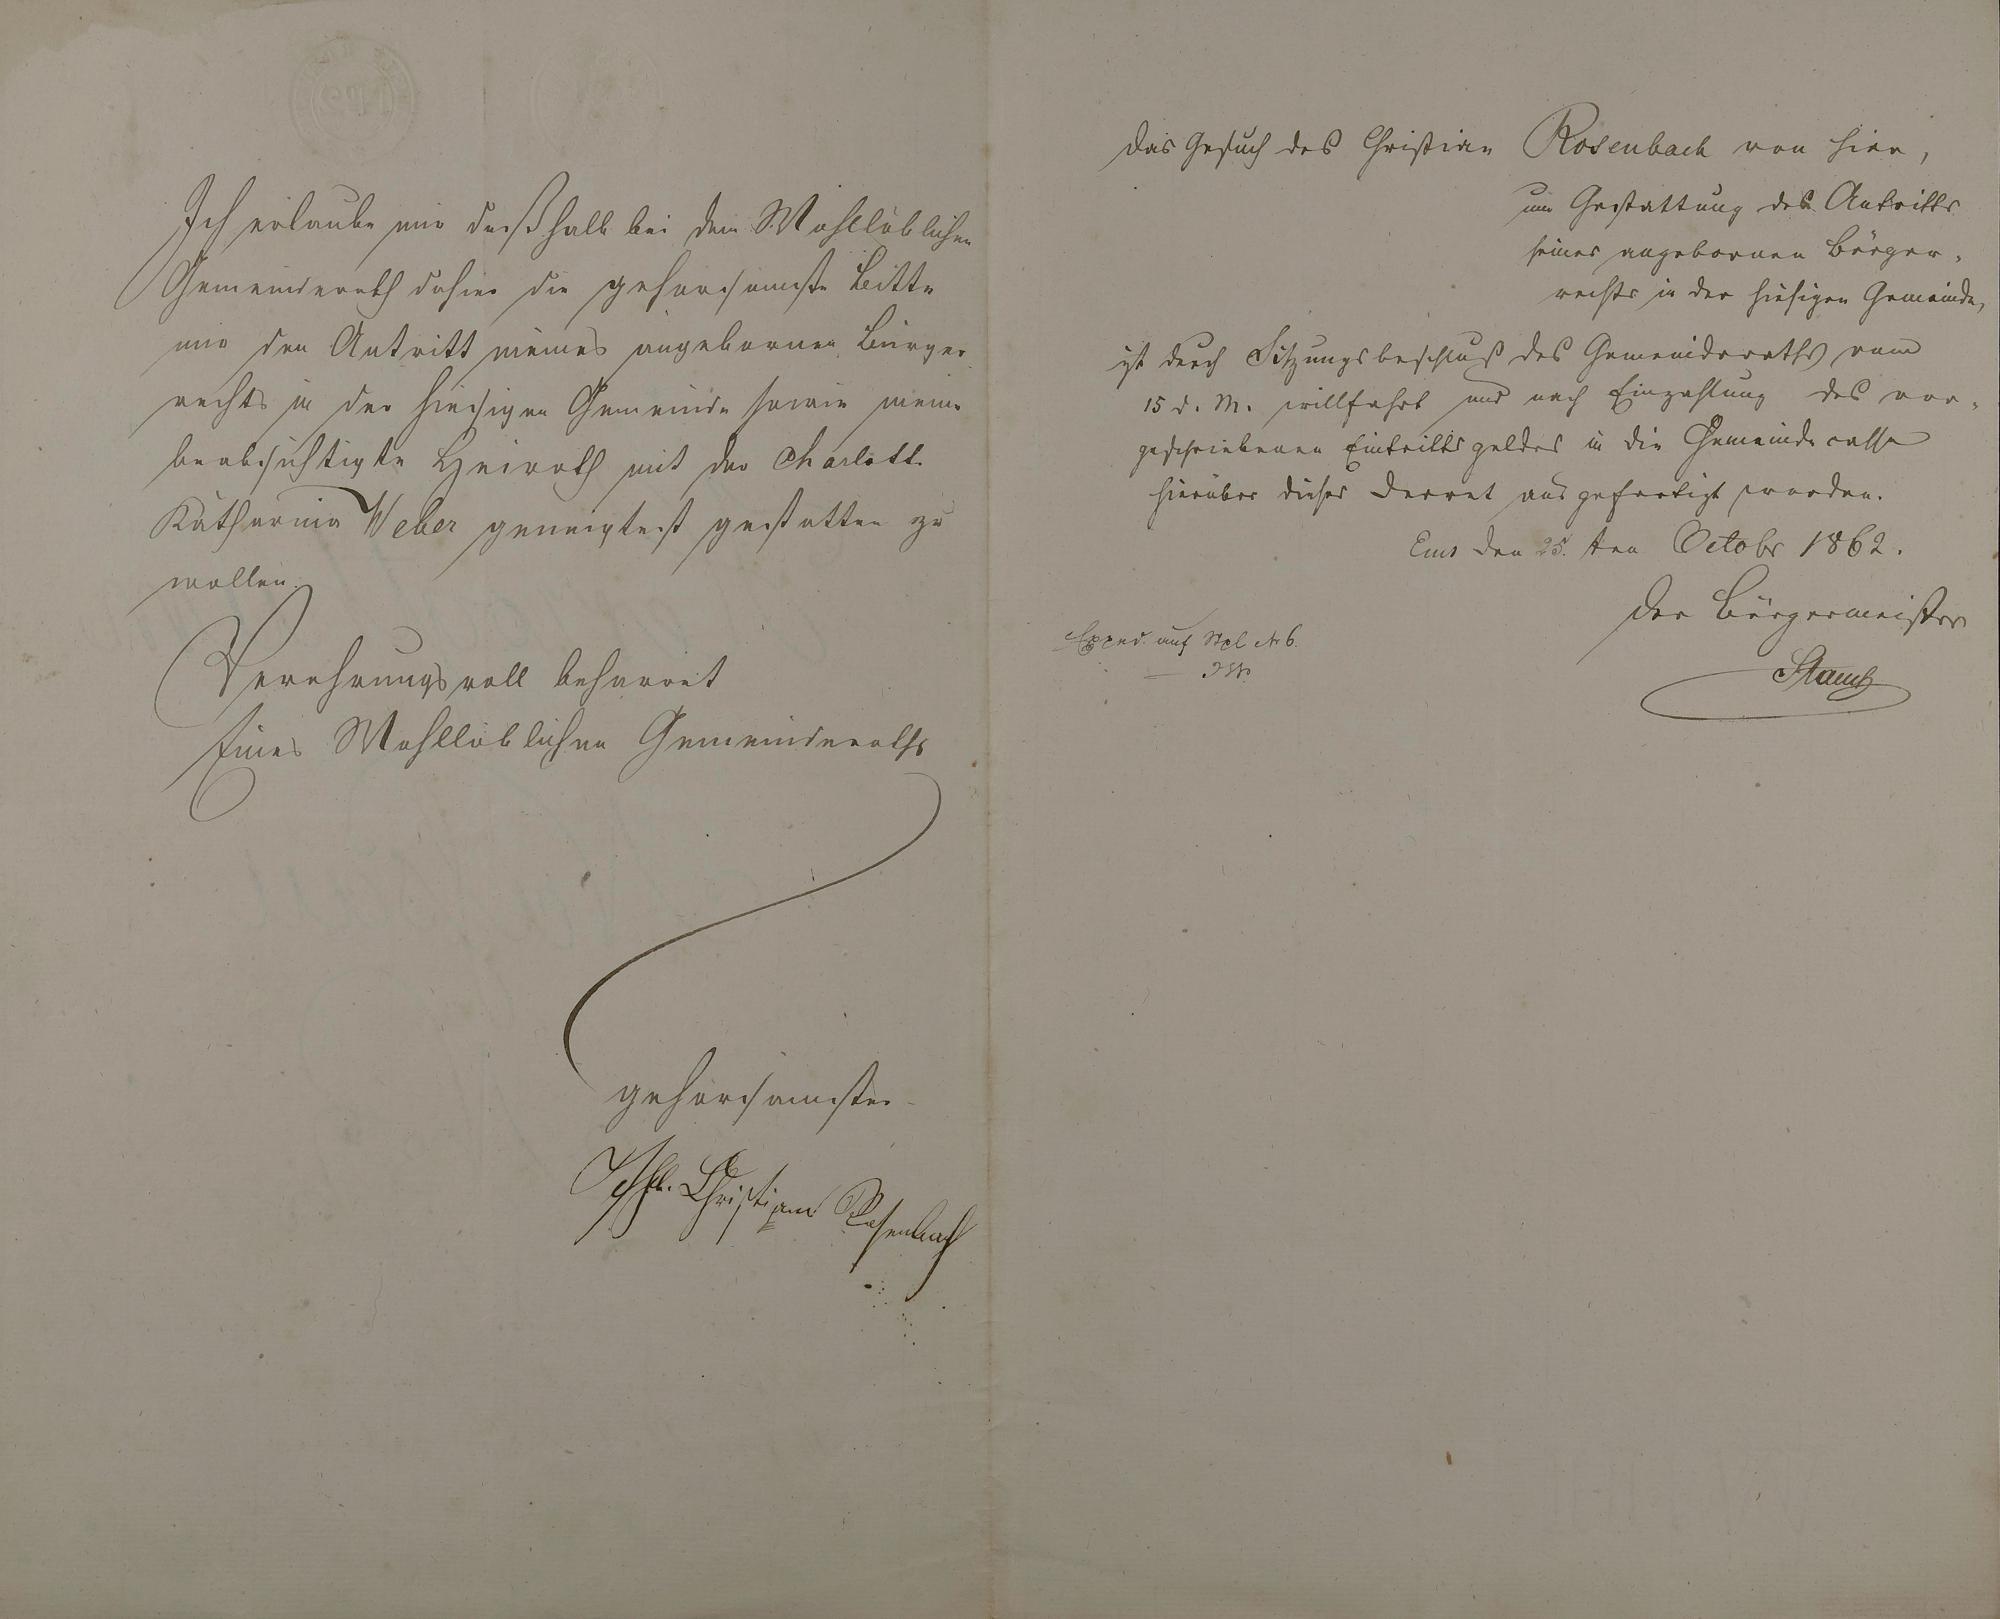 Ich erlaube mir deßhalb bei dem Wohllöblichen
Gemeinderath dahier die gehorsamste Bitte
mir den Antritt meines angebornen Bürger
rechts in der hiesigen Gemeinde sowie meine
beabsichtigte Heirath mit der Charlotte
Katharina Weber geneigtest gestatten zu
wollen.
Verehrungsvoll beharret
Eines Wohllöblichen Gemeinderaths
gehorsamster
Christian Rosenbach
Das Gesuch des Christian Rosenbach von hier,
um Gestattung des Antritts
seines angebornen Bürger-
rechts in der hiesigen Gemeinde,
ist durch Sitzungsbeschluß des Gemeinderaths vom
15 d. M. willfahrt und nach Einzahlung des vor-
geschriebenen Eintrittsgeldes in die Gemeindecasse
hierüber dieses Decret ausgefertigt worden.
Ems den 25. ten Octobr 1862.
Der Bürgermeister
Exped. auf Stpl No 6.